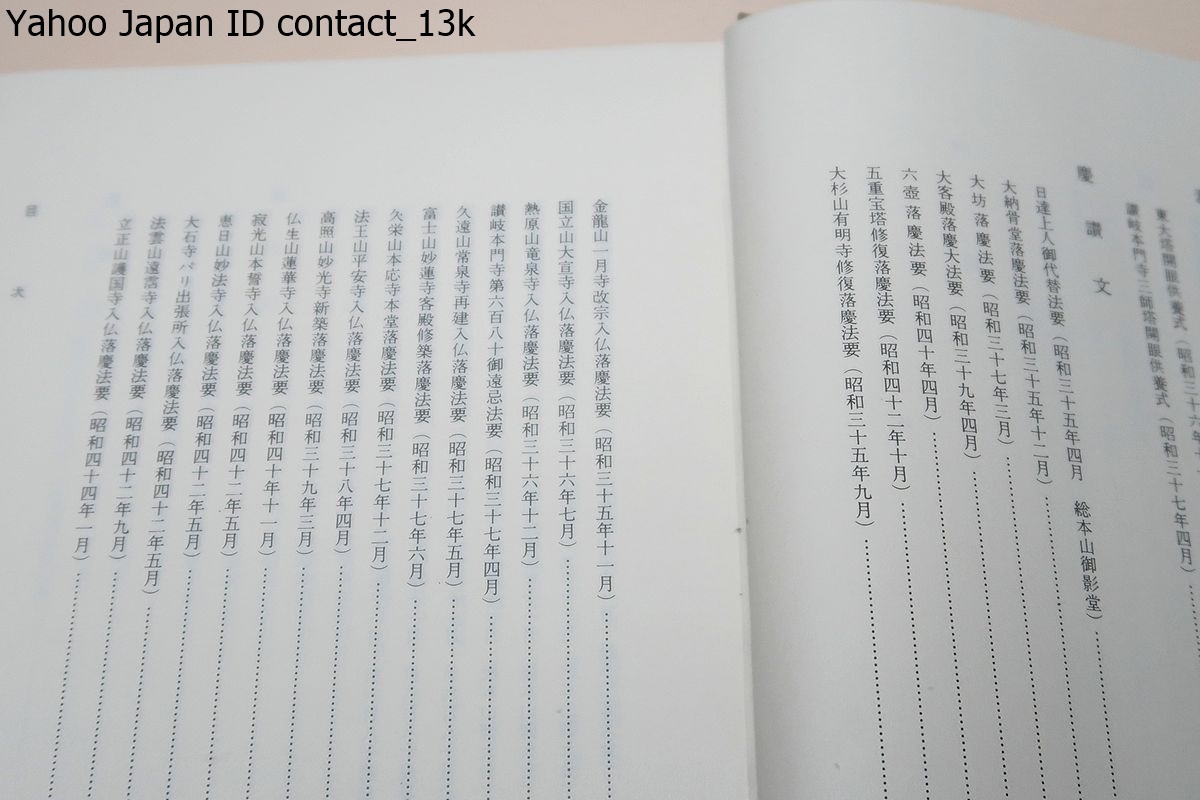 Yahoo Japan ID contact_13k
東大塔開眼供養式（昭和三十六年十
讃岐本門寺三師塔開眼供養式（昭和三十七年四月）
慶讃文
日達上人御代替法要（昭和三十五年四月　総本山御影堂）
大納骨堂落慶法要（昭和三十五年十二月）
大坊落慶法要（昭和三十七年三月）
大客殿落慶大法要（昭和三十九年四月）
六壺落慶法要（昭和四十年四月）
五重宝塔修復落慶法要（昭和四十二年十月）
大杉山有明寺修復落慶法要（昭和三十五年九月）
金龍山一月寺改宗入仏落慶法要（昭和三十五年十一月）
国立山大宣寺入仏落慶法要（昭和三十六年七月）
熱原山竜泉寺入仏落慶法要（昭和三十六年十二月）
讃岐本門寺第六百八十御遠忌法要（昭和三十七年四月）
久遠山常泉寺再建入仏落慶法要（昭和三十七年五月）
富士山妙蓮寺客殿修築落慶法要（昭和三十七年六月）
久栄山本応寺本堂落慶法要（昭和三十七年十二月）
法王山平安寺入仏落慶法要（昭和三十八年四月）
高照山妙光寺新築落慶法要（昭和三十九年三月）
仏生山蓮華寺入仏落慶法要（昭和四十年十一月）
寂光山本誓寺入仏落慶法要（昭和四十二年五月）
恵日山妙法寺入仏落慶法要（昭和四十二年五月）
大石寺パリ出張所入仏落慶法要（昭和四十二年五月）
法雲山遠霑寺入仏落慶法要（昭和四十二年九月）
立正山護国寺入仏落慶法要（昭和四十四年一月）
目次